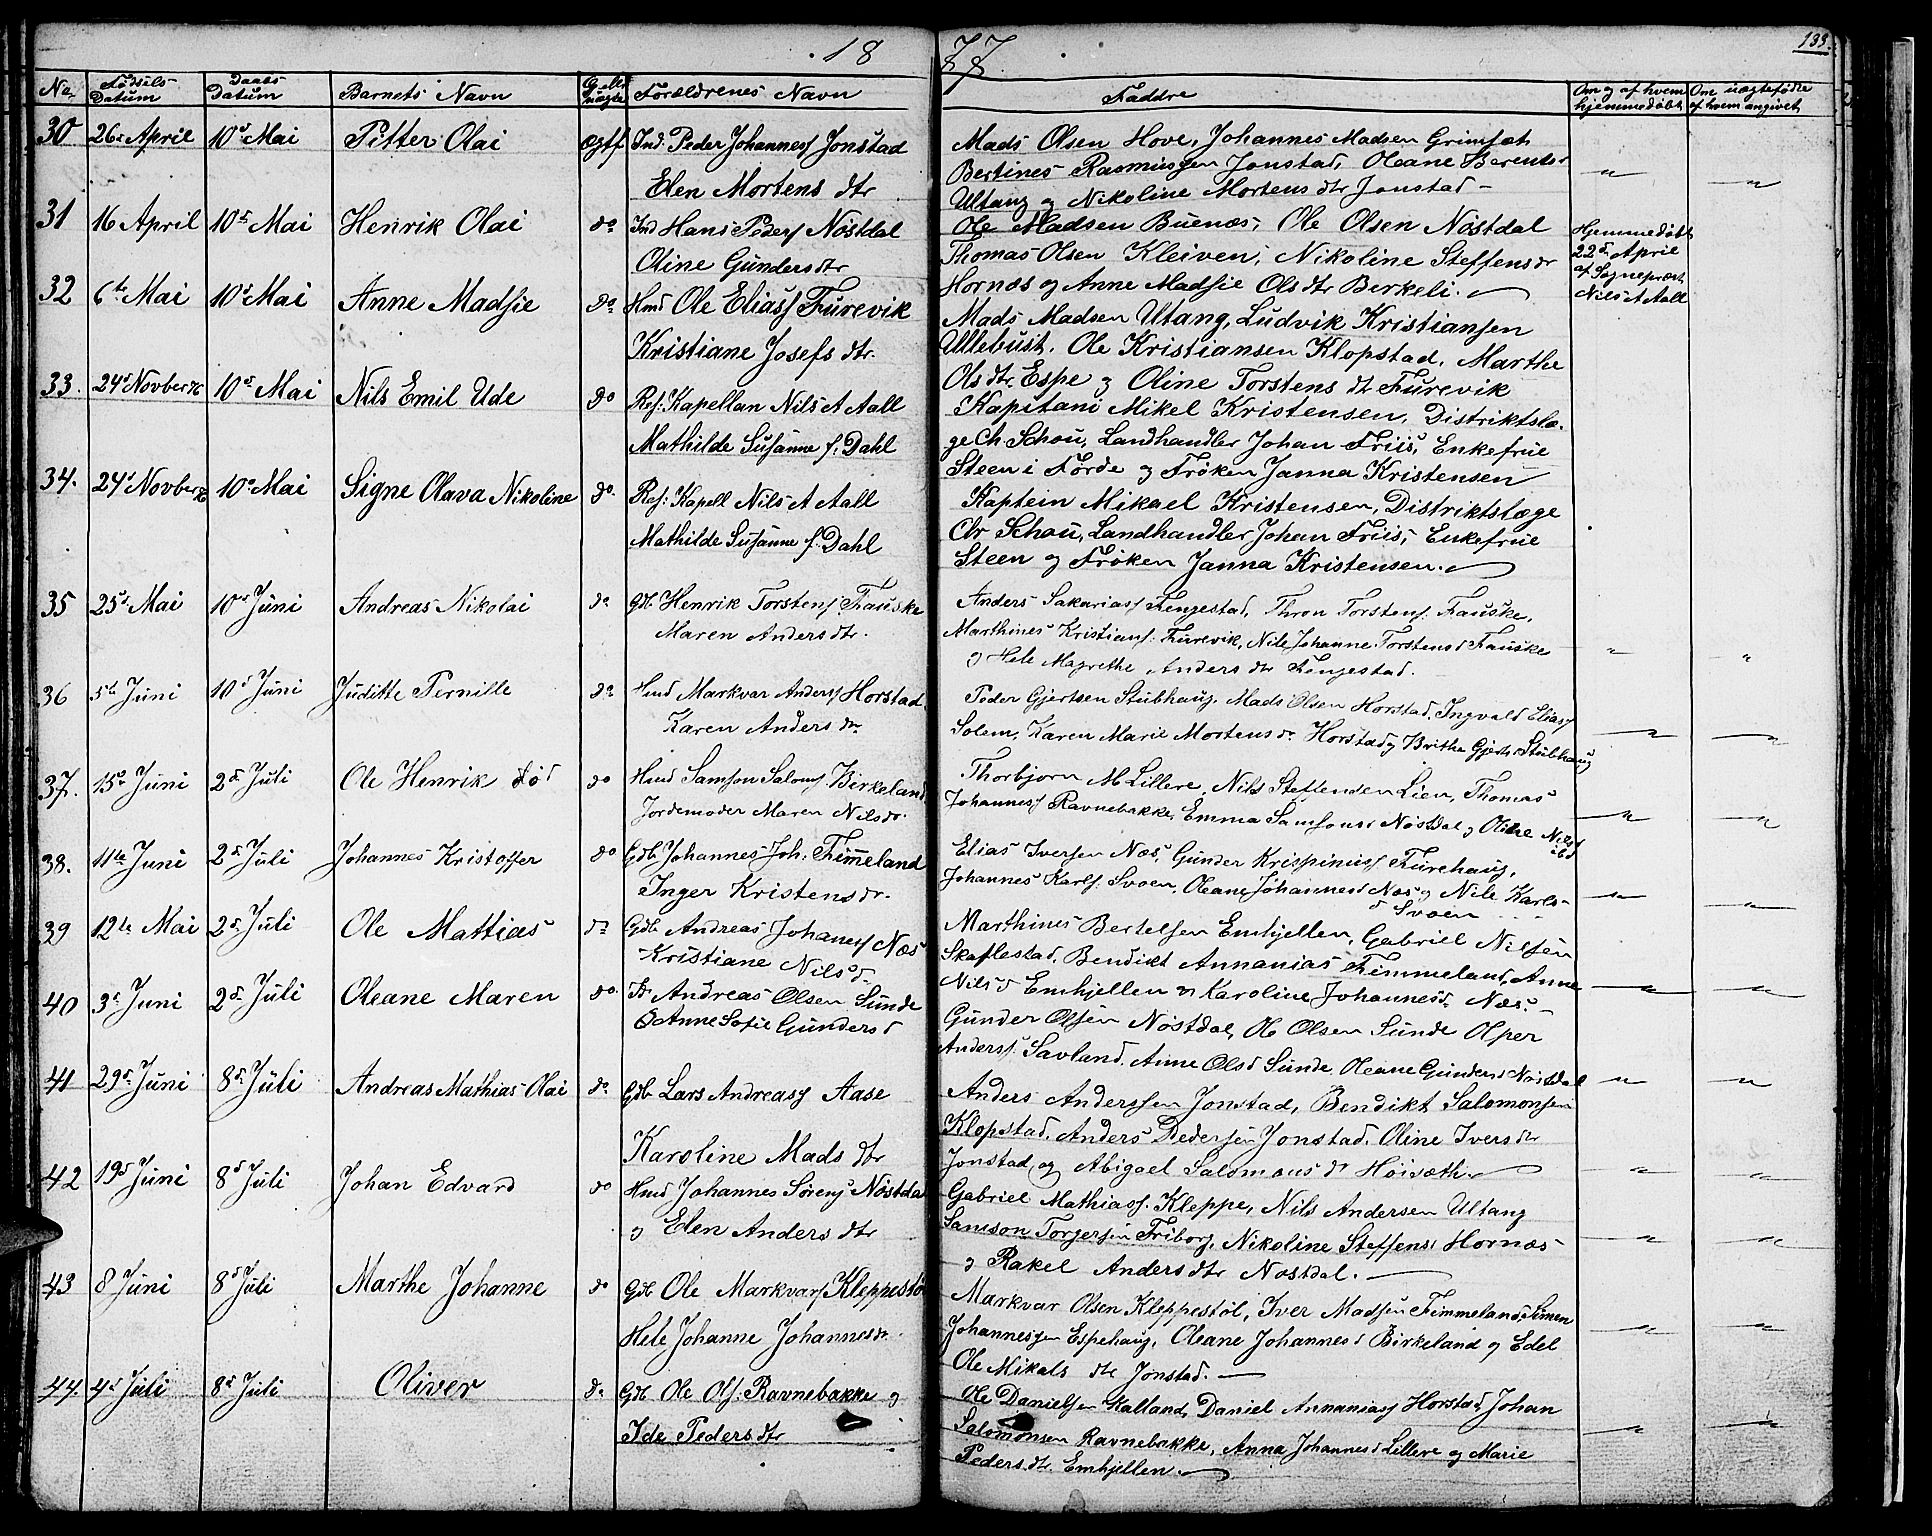 18 77
133.
No Fødsels Datum Daabs Datum Barnets Navn Forældrenes Navn Faddre Om og af hvem hjemmedøbt Om uægtefødte af hvem angivet
30 26d April 10d Mai Petter Olai ægtf Ind: Peder Johannesf Jonstad
Elen Mortens dtr
Mads Olsen Hove, Johannes Madsen Grimsæt
Bertines Rasmussen Jonstad, Oleane Berentsd
Ultang og Nikoline Mortens dtr Jonstad –
31 16 April 10d Mai Henrik Olai do Ind Hans Pedersf Nøstdal
Oline Gunders dtr
Ole Madsen Buenæs, Ole Olsen Nøstdal
Thomas Olsen Kleiven, Nikoline Steffensdr
Hornæs og Anne Madsie Ols dtr Berkeli.
Hjemmedøbt
22d April
af Sogneprest
Nils A Aall
32 6te Mai 10d Mai Anne Madsie do Hmd Ole Eliasf Furevik
Kristiane Josefs dtr.
Mads Madsen Ultang, Ludvik Kristiansen
Ullebust. Ole Kristiansen Klopstad, Marthe
Ols dtr Espe og Oline Torstens dt Furevik
33. 24d Novber 76 10d Mai Nils Emil Ude do Res: Kapellan Nils A Aall
Mathilde Susanne f. Dahl
Kapitani Mikel Kristensen, Distriktslæ-
ge Ch Schou, Landhandler Johan Friis, Enkefrue
Steen i Førde og Frøken Janna Kristensen
34. 24d Novber 76 10d Mai Signe Olava Nikoline do. Res: Kapell Nils A Aall
Mathilde Susanne f. Dahl
Kaptein Mikael Kristensen, Distriktslæge
Chr Schou, Landhandler Johan Friis, Enkefrue
Steen og Frøken Janna Kristensen.
35 25d Mai 10d Juni Andreas Nikolai do Gdb Henrik Torstensf Fauske
Maren Anders dtr.
Anders Sakariasf Fengestad, Thron Torstensf. Fauske,
Marthines Kristiansf. Furevik, Nile Johanne Torstensd Fauske
og Hele Magrethe Anders dtr Fengestad.
36 5te Juni 10d Juni Juditte Pernille do Hmd Markvar Andersf Horstad
Karen Anders dr
Peder Gjertsen Stubhaug, Mads Olsen Horstad, Ingvald Eliasf
Solem, Karen Marie Mortens dr Horstad og Brithe Gjerts d Stubhaug
37. 15d Juni 2d Juli Ole Henrik død do Hmd Samson Salomsf Birkeland
Jordemoder Maren Nilsdr.
Thorbjørn M Lillere, Nils Steffensen Lien, Thomas
Johannesf Ravnebakke, Emma Samsonsd Nøstdal og Oline Nilsd
ibd
38. 11te Juni 2d Juli Johannes Kristoffer do Gdb Johannes Joh. Fimmeland
Inger Kristensdr.
Elias Iversen Næs, Gunder Krispinusf Furehaug,
Johannes Karlsf. Svoen, Oleane Johannesd Næs og Nile Karls-
d Svoen
39 12te Mai 2d Juli Ole Mattias do Gdb Andreas Johannesf Næs
Kristiane Nilsd
Marthines Bertelsen Emhjellen, Gabriel Nilsen
Skaflestad, Bendikt Annanias Fimmeland, Anne
Nilsd Emhjellen og Karoline Johannesd Næs.
40 3d Juni 2d Juli Oleane Maren do. Andreas Olsen Sunde
Anne Sofie Gundersd
Gunder Olsen Nøstdal, Ole Olsen Sunde Olper
Andersf. Savland, Anne Olsd Sunde, Oleane Gundersd Nøstdal
41 29d Juni 8d Juli Andreas Mathias Olai do Gdb Lars Andreasf Aase
Karoline Mads dtr
Anders Andersen Jonstad, Bendikt Salomonsen
Klopstad, Anders Pedersen Jonstad, Oline Ivers dtr
Jonstad og Abigael Salomons dr Høisæth.
42 19d Juni 8d Juli Johan Edvard do Hmd Johannes Sørensf Nøstdal
og Elen Anders dtr
Gabriel Mathiasf. Kleppe, Nils Andersen Ultang
Samson Torgersen Friborg, Nikoline Steffensd Hornæs
og Rakel Anders dtr Nøstdal.
43 8 Juni 8d Juli Marthe Johanne do Gdb Ole Markvarsf Kleppestøl
Hele Johanne Johannesdr.
Markvar Olsen Kleppestøl, Iver Madsen Fimmeland, Simen
Johannesen Espehaug, Oleane Johannesd Birkeland og Edel
Ole Mikals dtr Jonstad.
44. 4d Juli 8d Juli Oliver do Gdb Ole Olsf. Ravnebakke og
Ide Peders dtr
Ole Danielsen Kalland, Daniel Annaniasf Horstad, Johan
Salomonsen Ravnebakke, Anna Johannesd Lillere og Marie
Peders dtr Emhjellen.